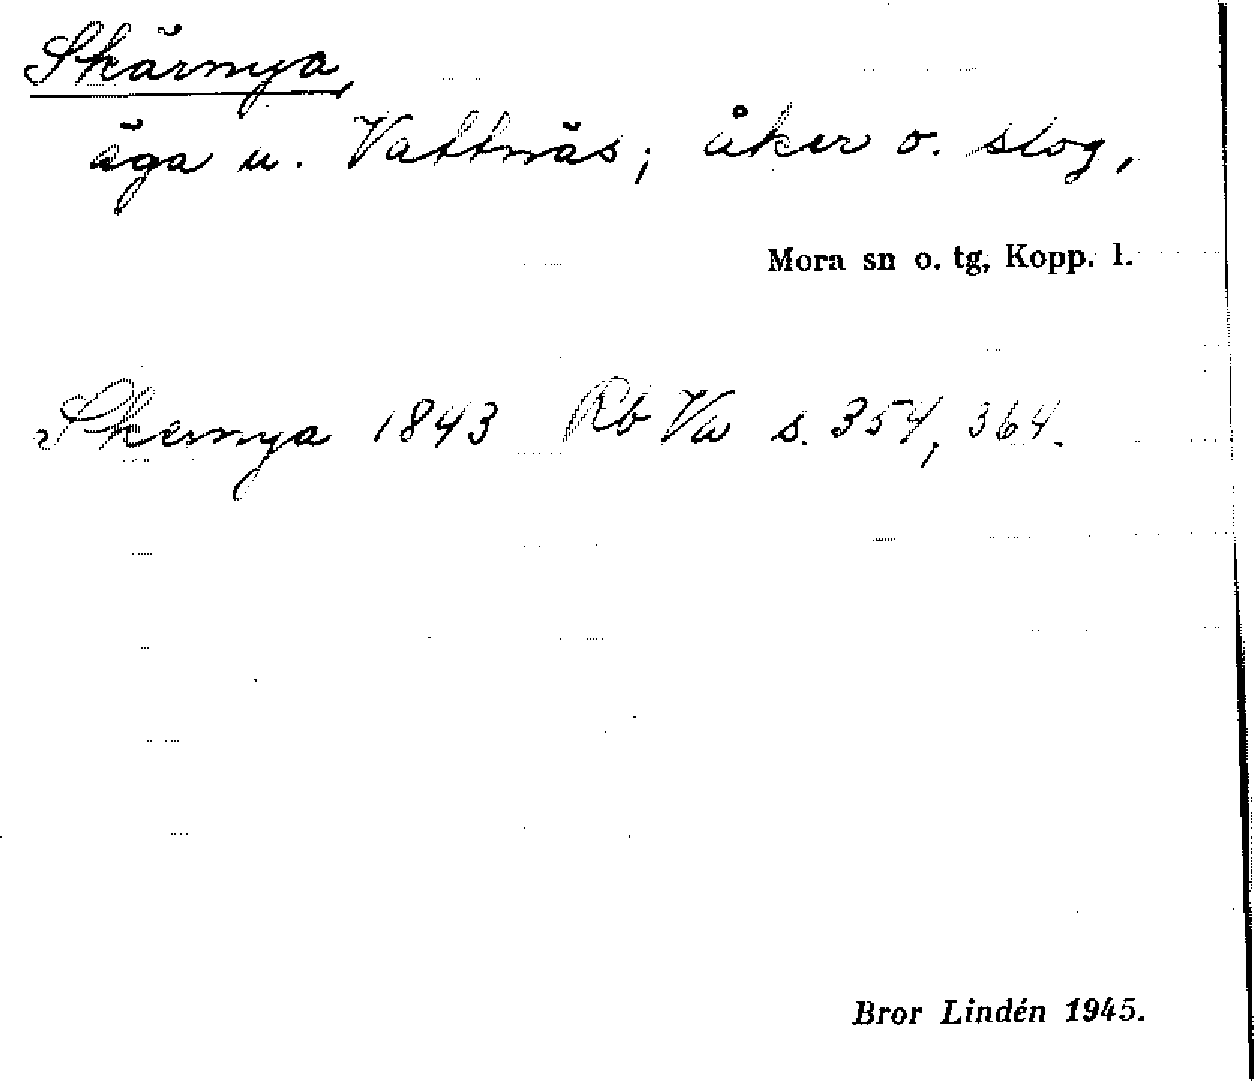 Skärnya,
äga u. Vattnäs; åker o. slog,
Mora sn o. tg, Kopp. l.
Skernya 1843 Rb Va s. 354, 364.
Bror Lindén 1945.